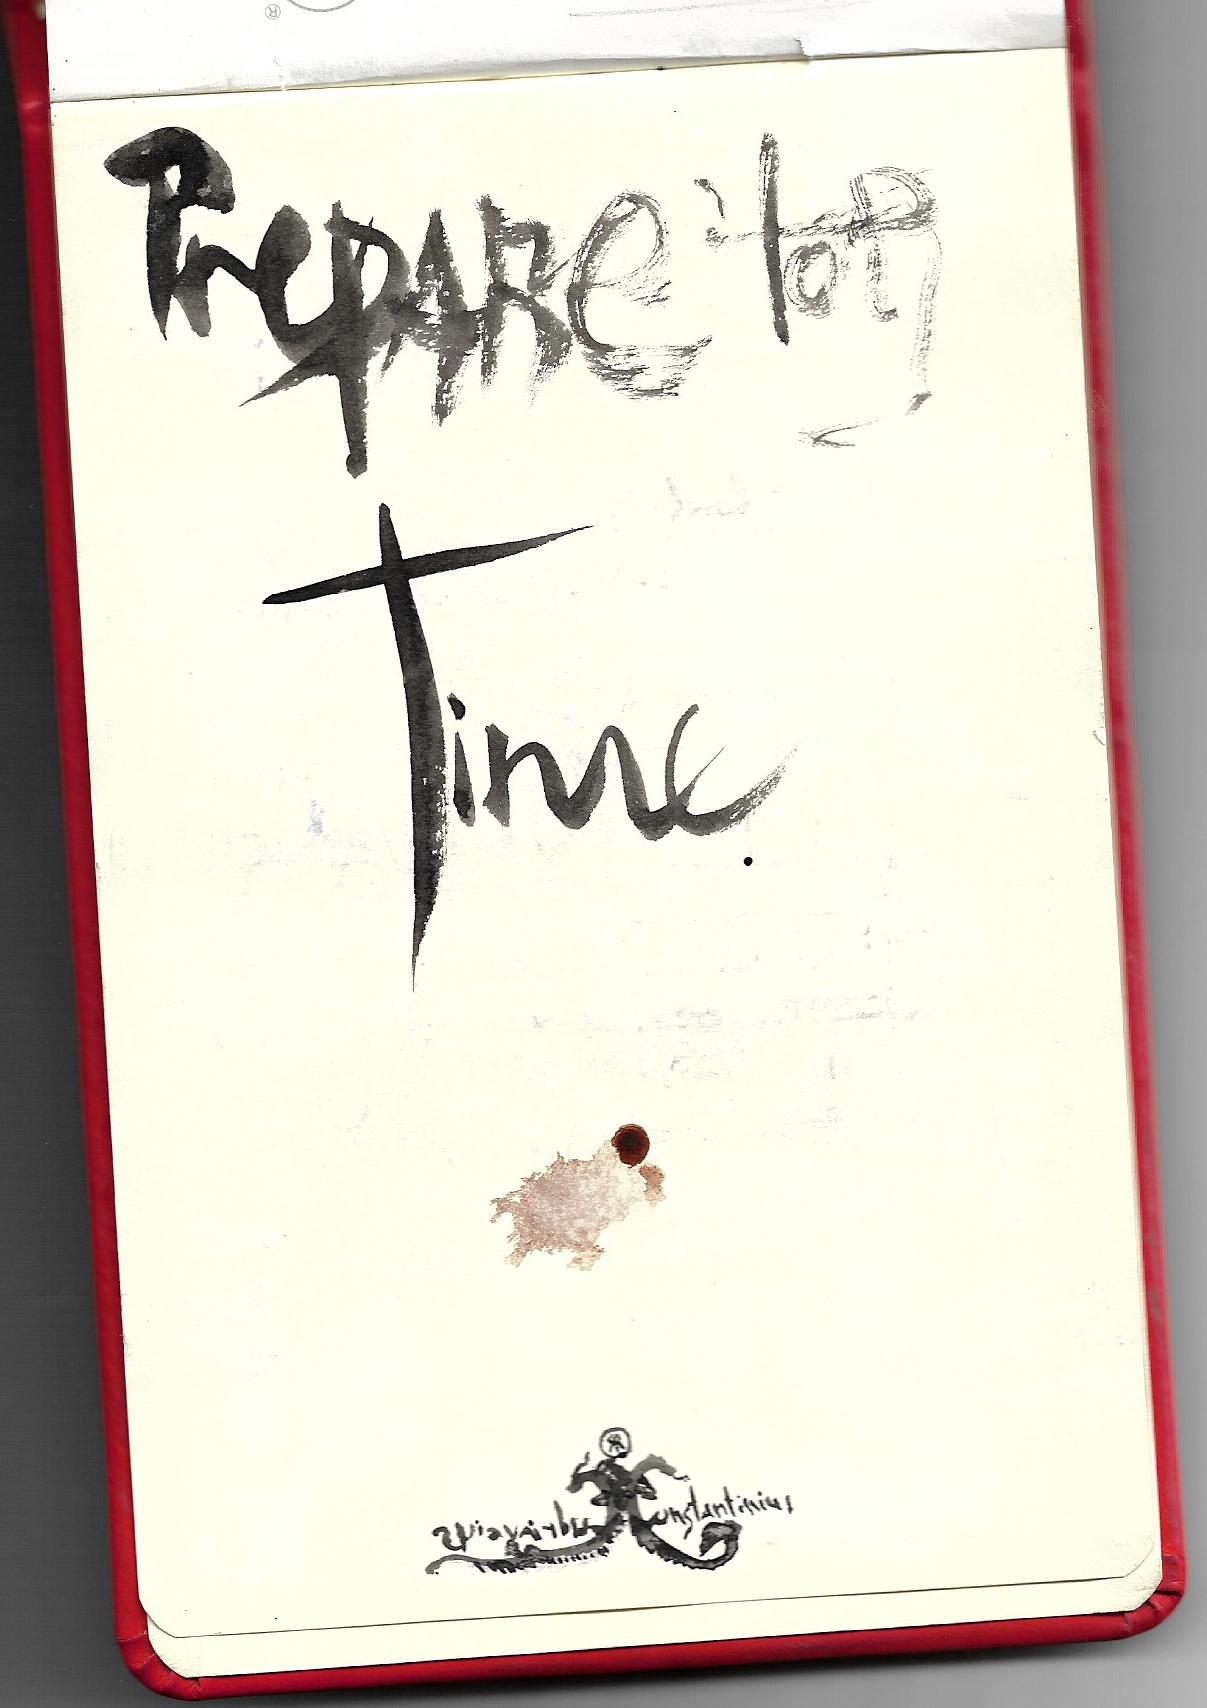 ®
PrepARe for
Time.
Constantinius